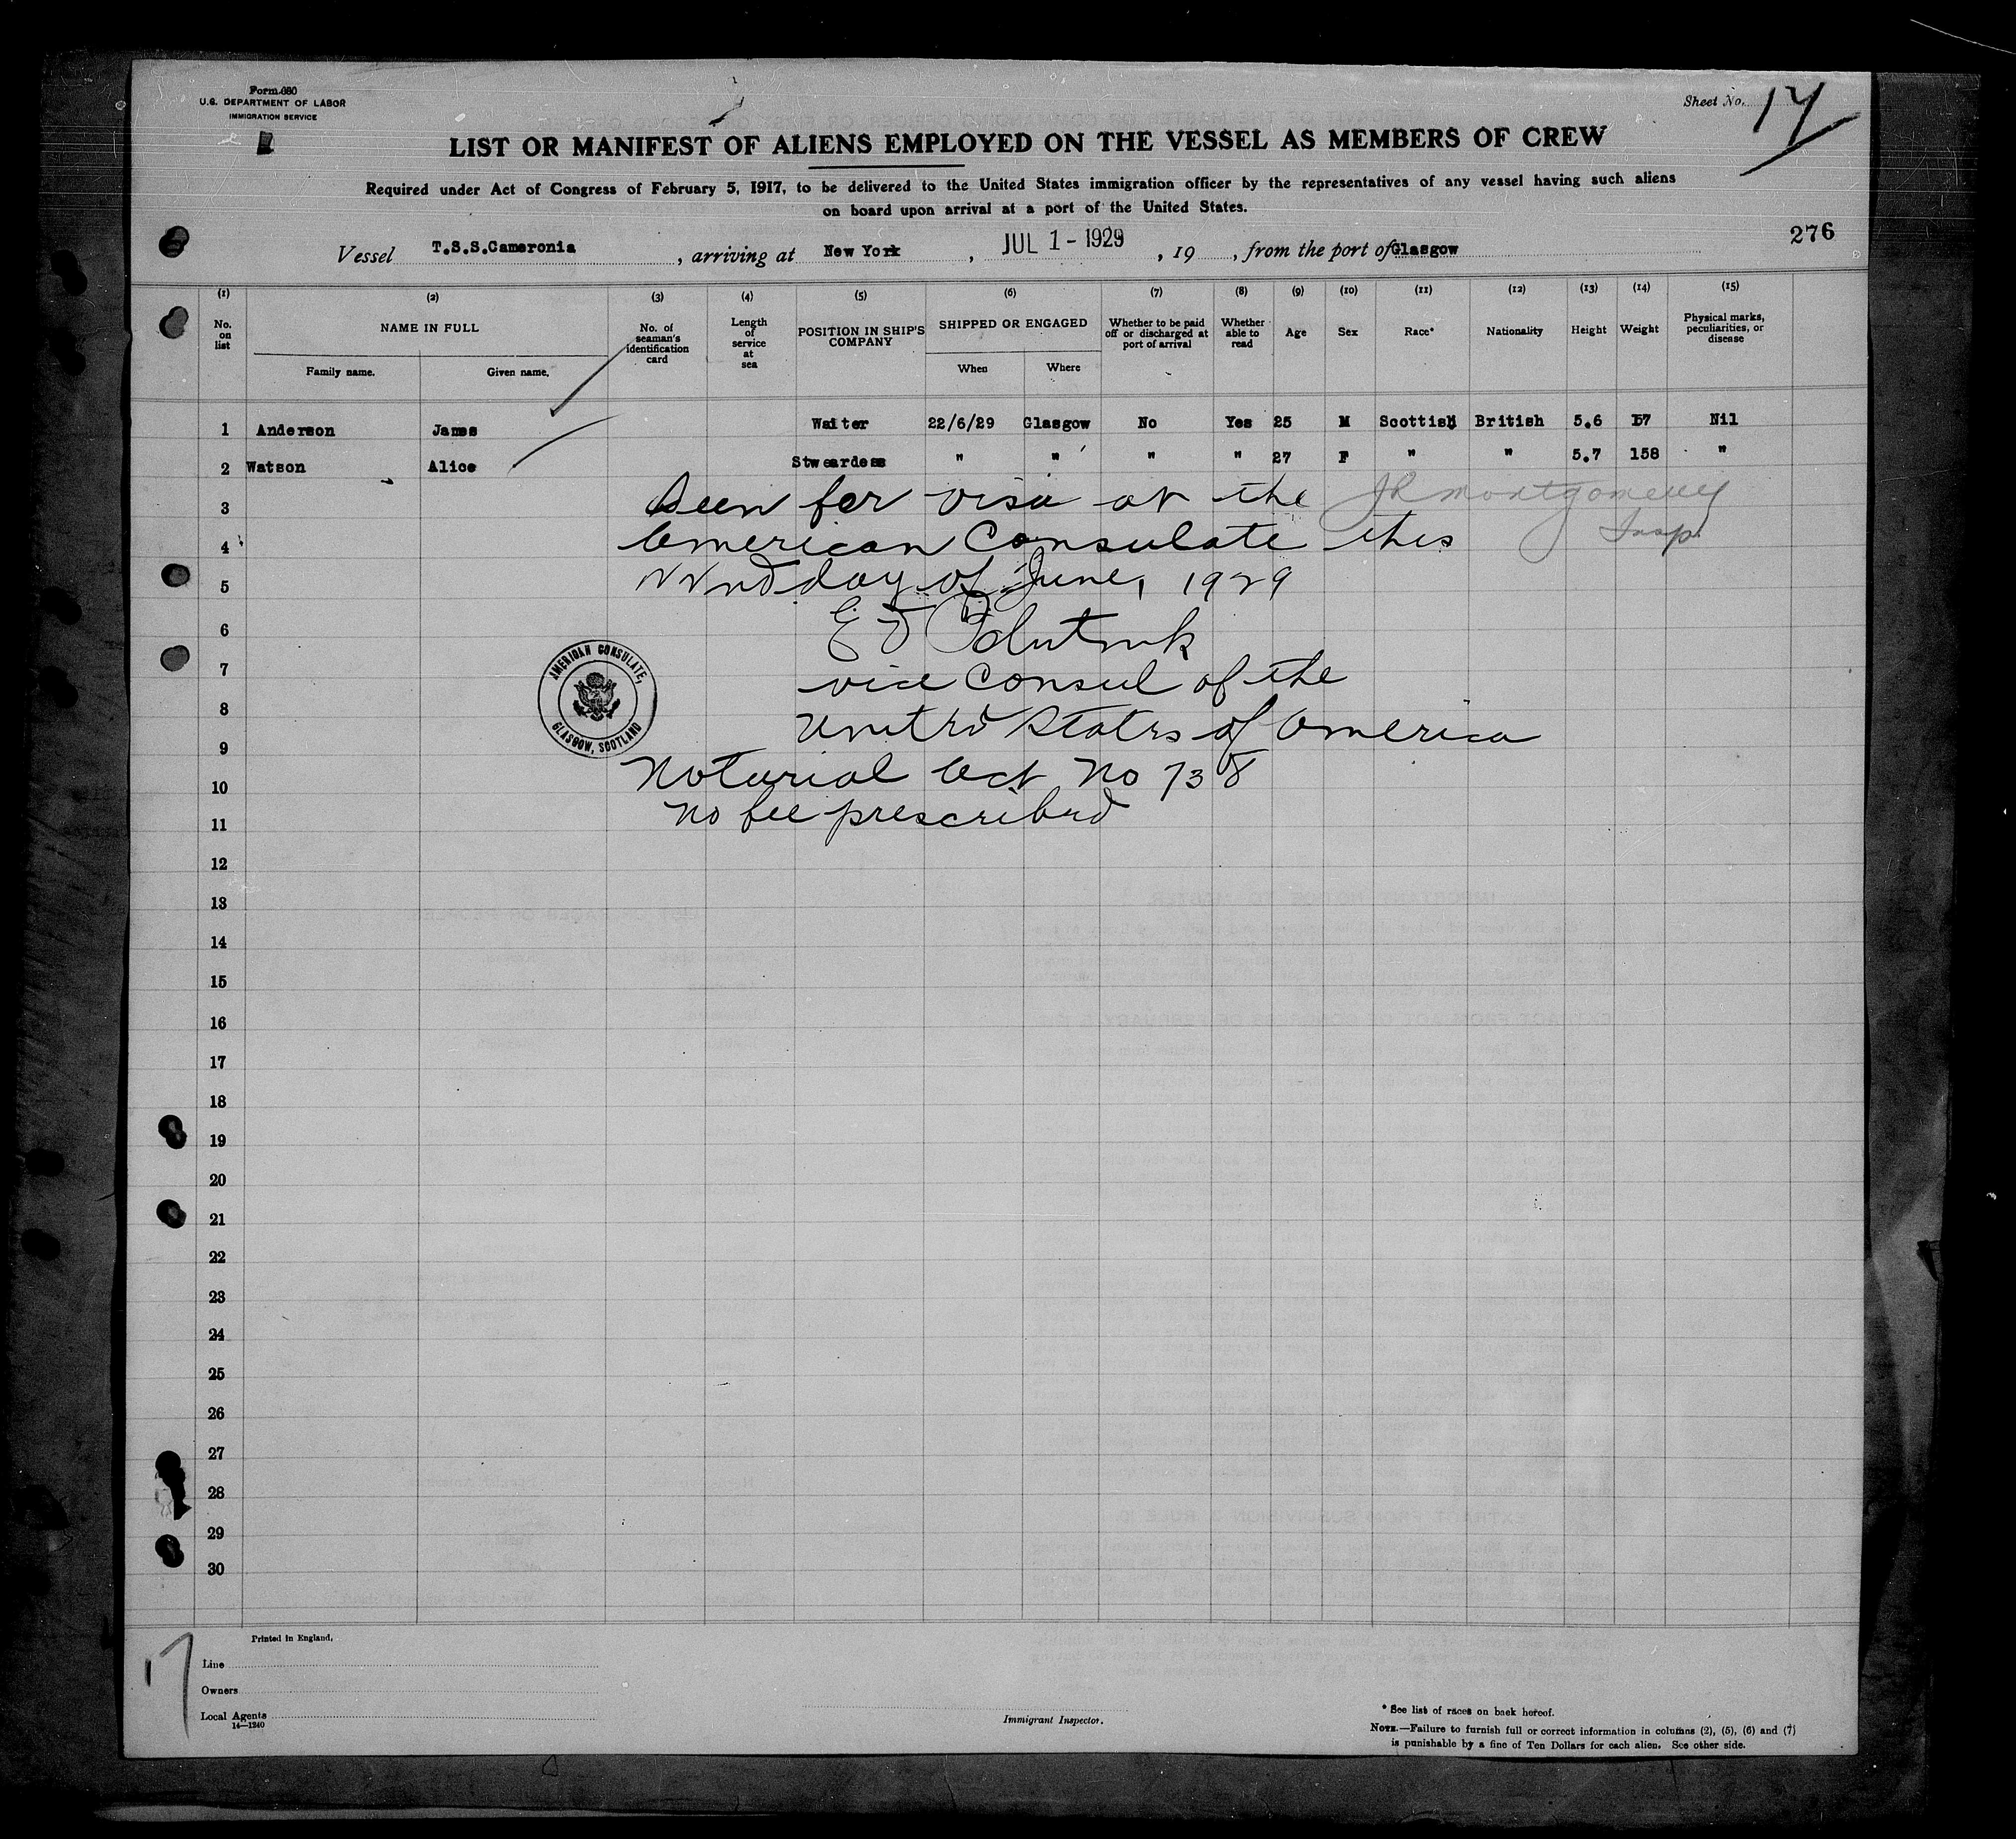 Form 680
U.S. DEPARTMENT OF LABOR
IMMIGRATION SERVICE
Sheet No.
LIST OR MANIFEST OF ALIENS EMPLOYED ON THE VESSEL AS MEMBERS OF CREW
Required under Act of Congress of February 5, 1917, to be delivered to the United States immigration officer by the representatives of any vessel having such aliens
on board upon arrival at a port of the United States.
276
Vessel T.S.S.Cameronia, arriving at New York, JUL 1 - 1929, 19, from the port of Glasgow
(1) (2) (3) (4) (5) (6) (7) (8) (9) (10) (11) (12) (13) (14) (15)
No. on list NAME IN FULL Family name. Given name. No. of seaman's identification card Length of service at sea POSITION IN SHIP'S COMPANY SHIPPED OR ENGAGED When Where Whether to be paid off or discharged at port of arrival Whether able to read Age Sex Race* Nationality Height Weight Physical marks, peculiarities, or disease
1 Anderson James Waiter 22/6/29 Glasgow No Yes 25 M Scottish British 5.6 Nil
2 Watson Alice Stweardess " " " " 27 F " " 5.7 158 "
3 Seen for visa at the JR Montgomery
4 American Consulate this Insp.
5 22nd day of June, 1929
6 E
7 vice Consul of the
AMERICAN CONSULATE, GLASGOW, SCOTLAND
8 United States of America
9
10 Notarial Act No 738
11 no fee prescribed
12
13
14
15
16
17
18
19
20
21
22
23
24
25
26
27
28
29
30
17
Printed in England.
Line
Owners
Local Agents
14—1240
Immigrant Inspector.
* See list of races on back hereof.
NOTE.—Failure to furnish full or correct information in columns (2), (5), (6) and (7)
is punishable by a fine of Ten Dollars for each alien. See other side.